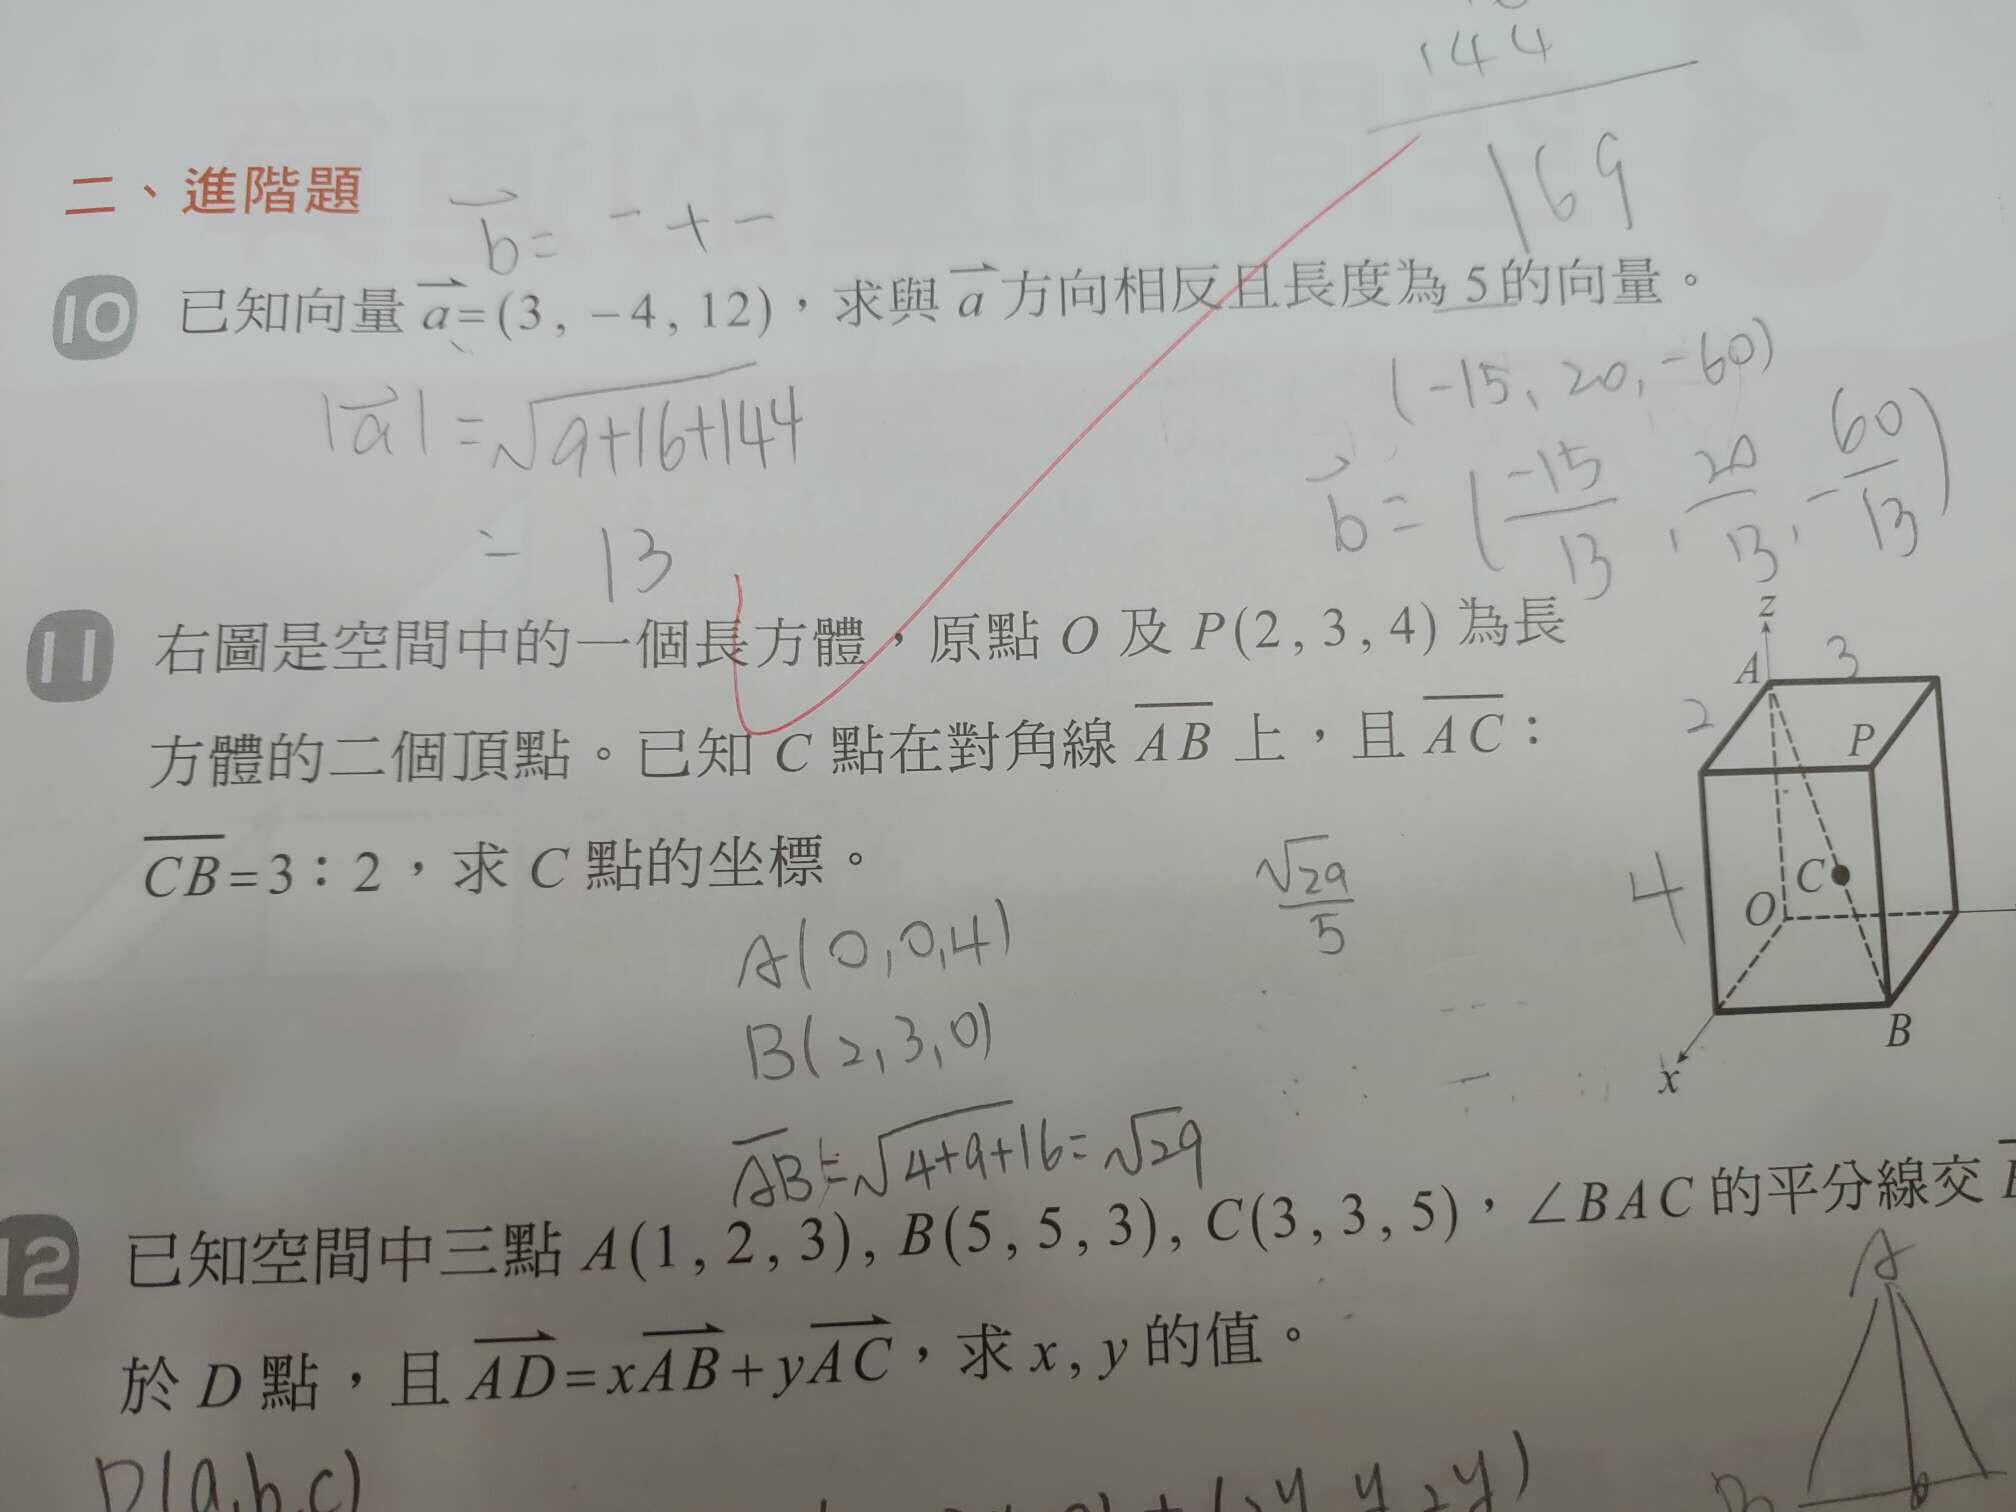 144
169
二、進階題
b = - + -
10 已知向量 a=(3, −4, 12),求與 a 方向相反且長度為 5 的向量。
(-15, 20, -60)
|a| = √9+16+144
= 13
b = (-15/13, 20/13, -60/13)
11 右圖是空間中的一個長方體,原點 O 及 P(2, 3, 4) 為長
方體的二個頂點。已知 C 點在對角線 AB 上,且 AC:
CB=3:2,求 C 點的坐標。
z
A 3
2
P
4
O C
B
x
√29/5
A(0,0,4)
B(2,3,0)
AB=√4+9+16=√29
12 已知空間中三點 A(1, 2, 3), B(5, 5, 3), C(3, 3, 5),∠BAC 的平分線交
於 D 點,且 AD=xAB+yAC,求 x, y 的值。
A
D(a,b,c)